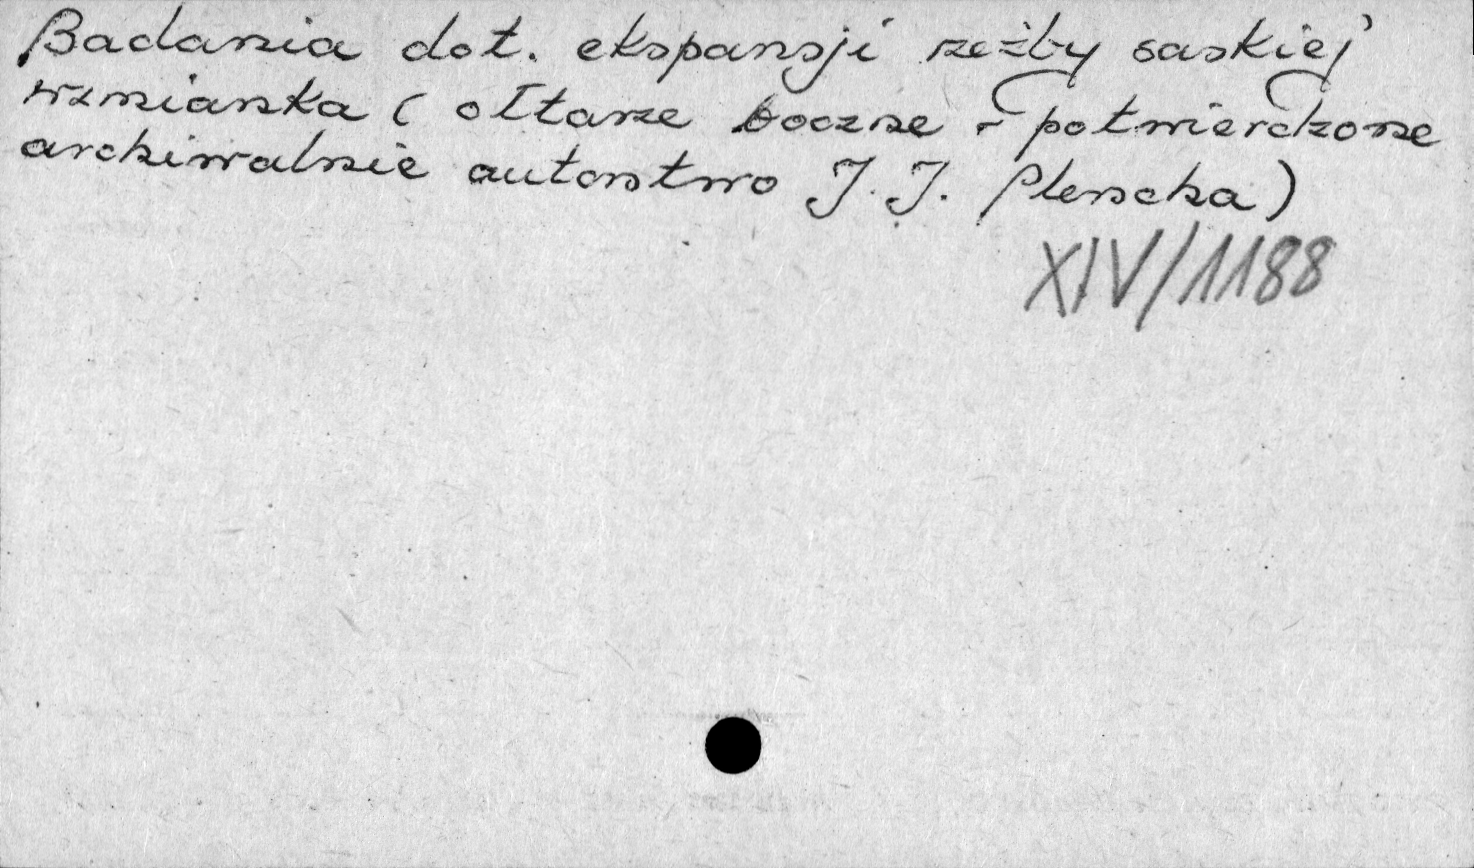 Badania dot. ekspansji rzeźby saskiej
wzmianka (ołtarze boczne - potwierdzone
archiwalnie autorstwo J. J. Plencka)
XIV/1188